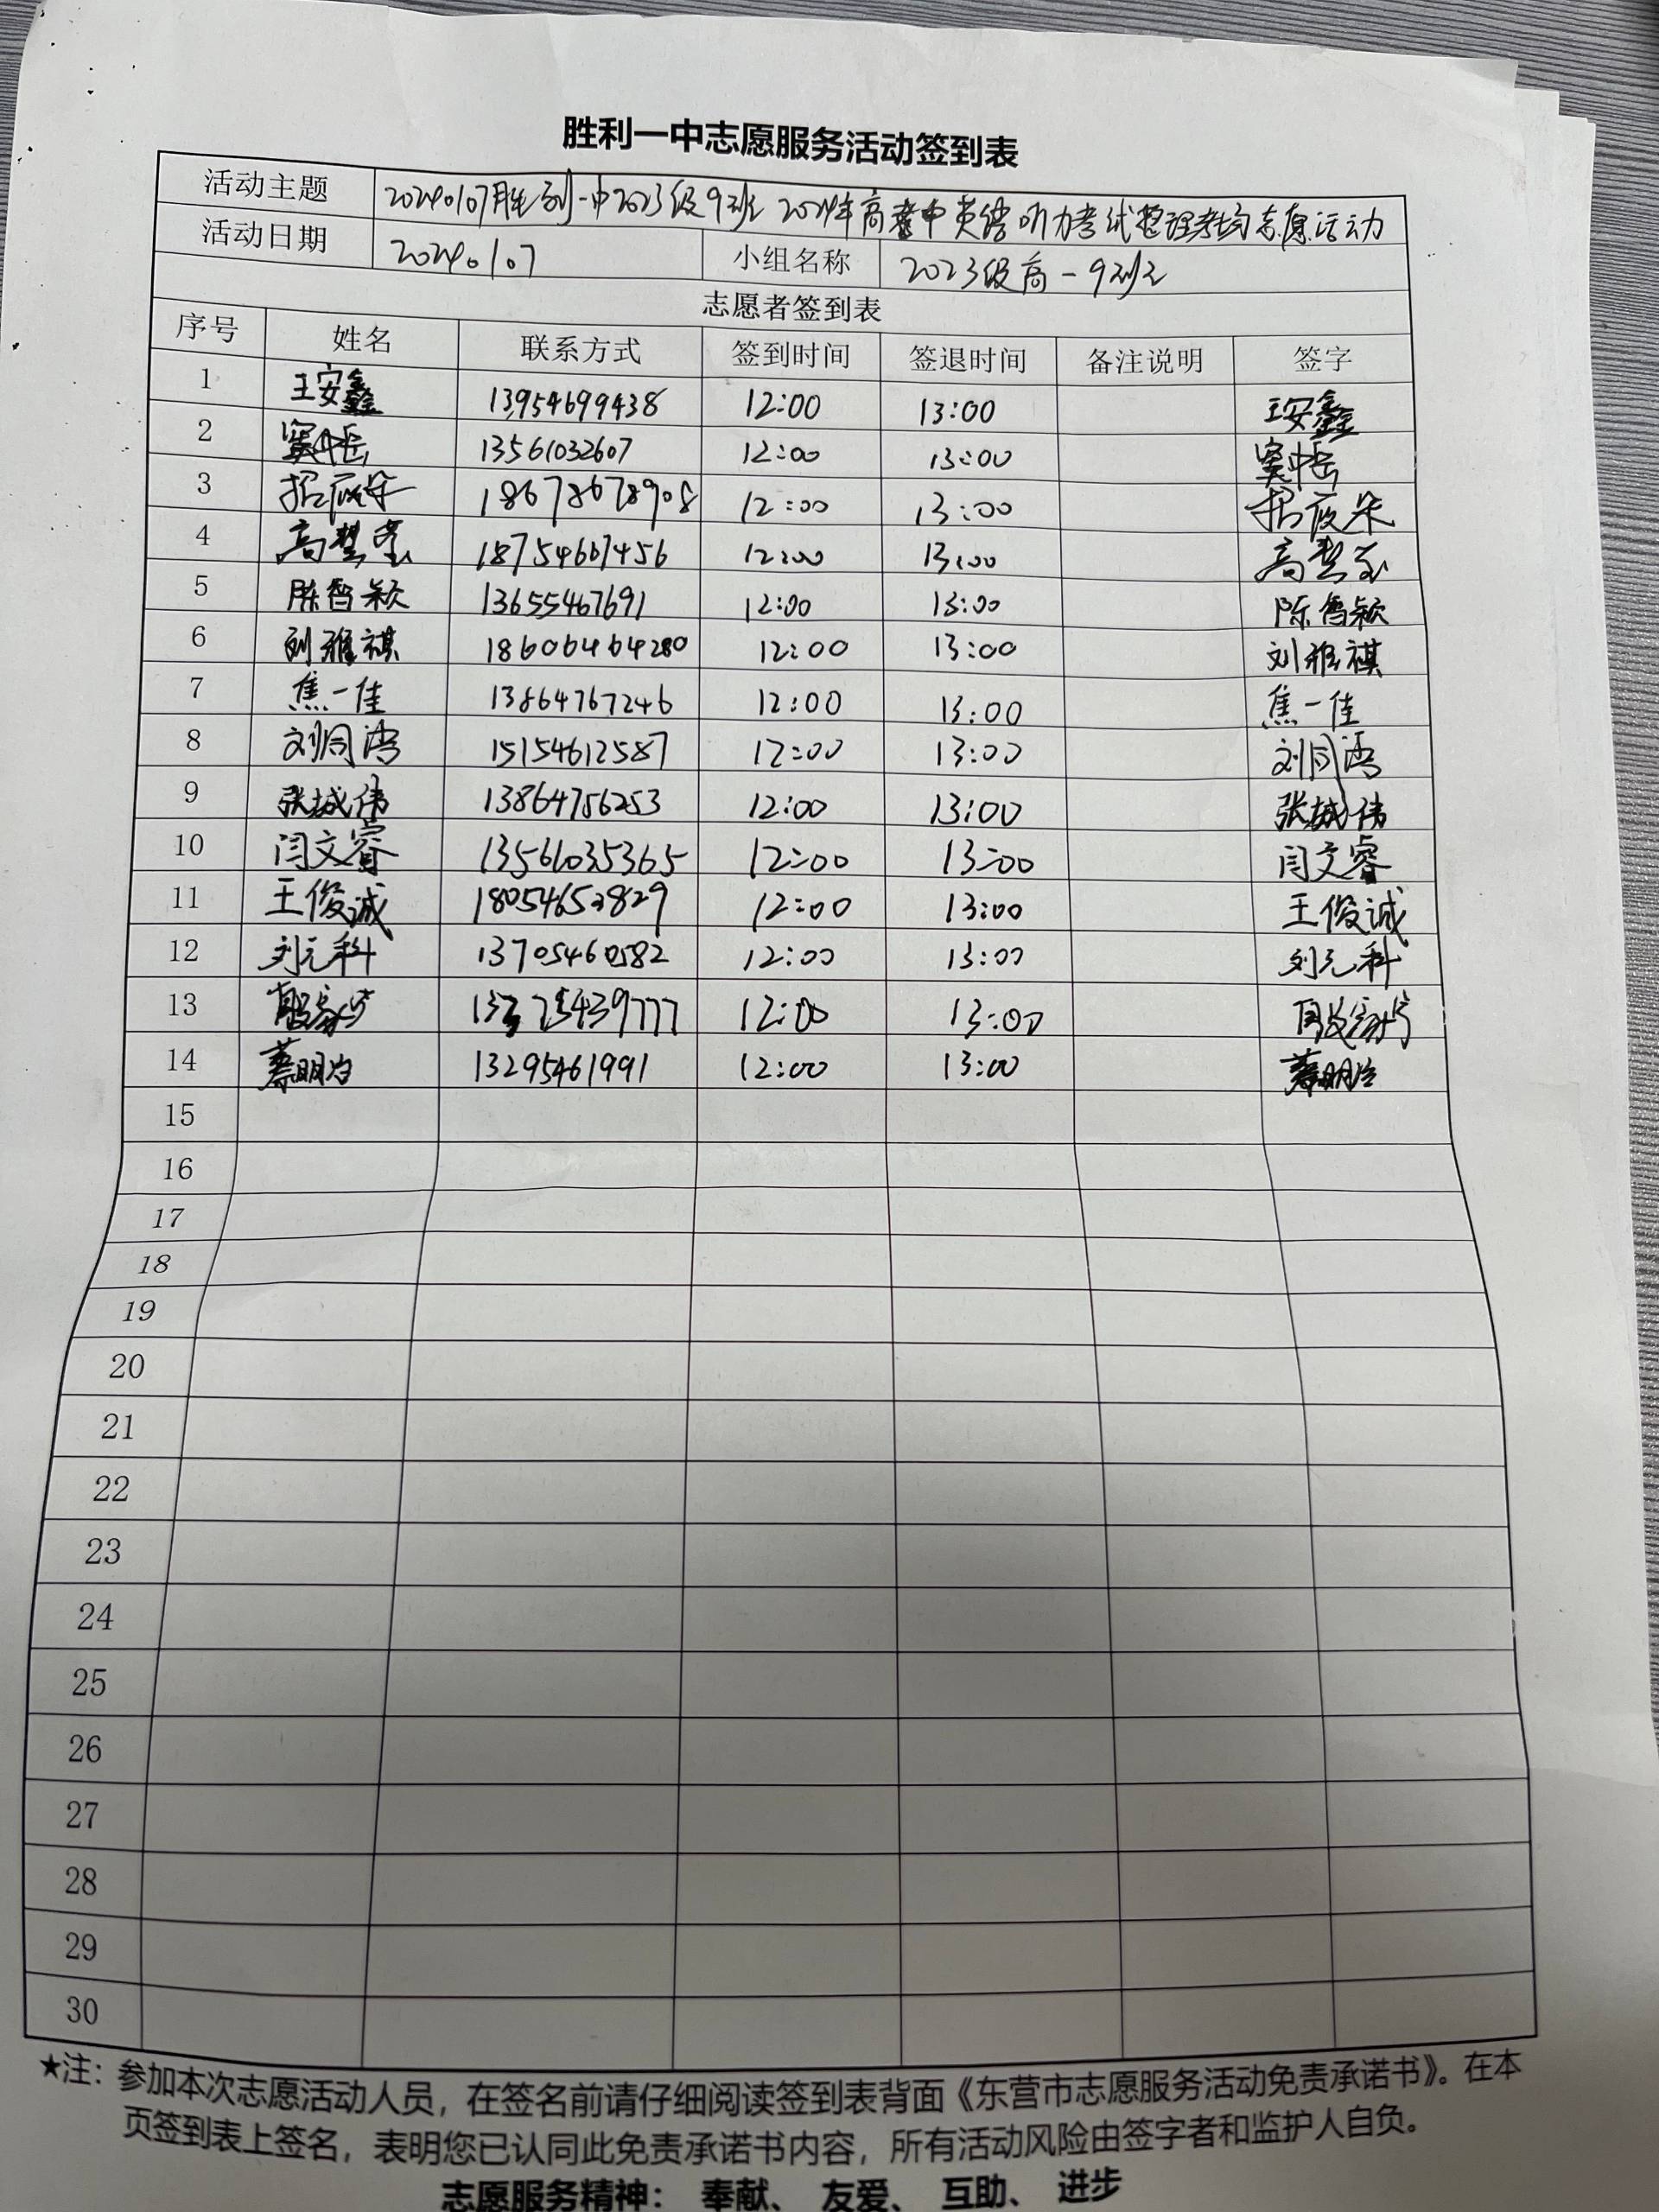 胜利一中志愿服务活动签到表
活动主题 20240107胜利一中2023级9班 2024年高考中英语听力考试整理考场志愿活动
活动日期 20240107 小组名称 2023级高一9班
志愿者签到表
序号 姓名 联系方式 签到时间 签退时间 备注说明 签字
1 王安鑫 13954699438 12:00 13:00 王安鑫
2 窦中岳 13561032607 12:00 13:00 窦中岳
3 18678678908 12:00 13:00
4 18754607456 12:00 13:00
5 陈智颖 13655467691 12:00 13:00 陈智颖
6 刘雅祺 18606464280 12:00 13:00 刘雅祺
7 焦一佳 13864767246 12:00 13:00 焦一佳
8 15154612587 12:00 13:00
9 张城伟 13864756253 12:00 13:00 张城伟
10 闫文睿 13561035365 12:00 13:00 闫文睿
11 王俊诚 18054652829 12:00 13:00 王俊诚
12 刘元科 13705460582 12:00 13:00 刘元科
13 12:00 13:00
14 13295461991 12:00 13:00
15
16
17
18
19
20
21
22
23
24
25
26
27
28
29
30
★注：参加本次志愿活动人员，在签名前请仔细阅读签到表背面《东营市志愿服务活动免责承诺书》。在本
页签到表上签名，表明您已认同此免责承诺书内容，所有活动风险由签字者和监护人自负。
志愿服务精神： 奉献、 友爱、 互助、 进步